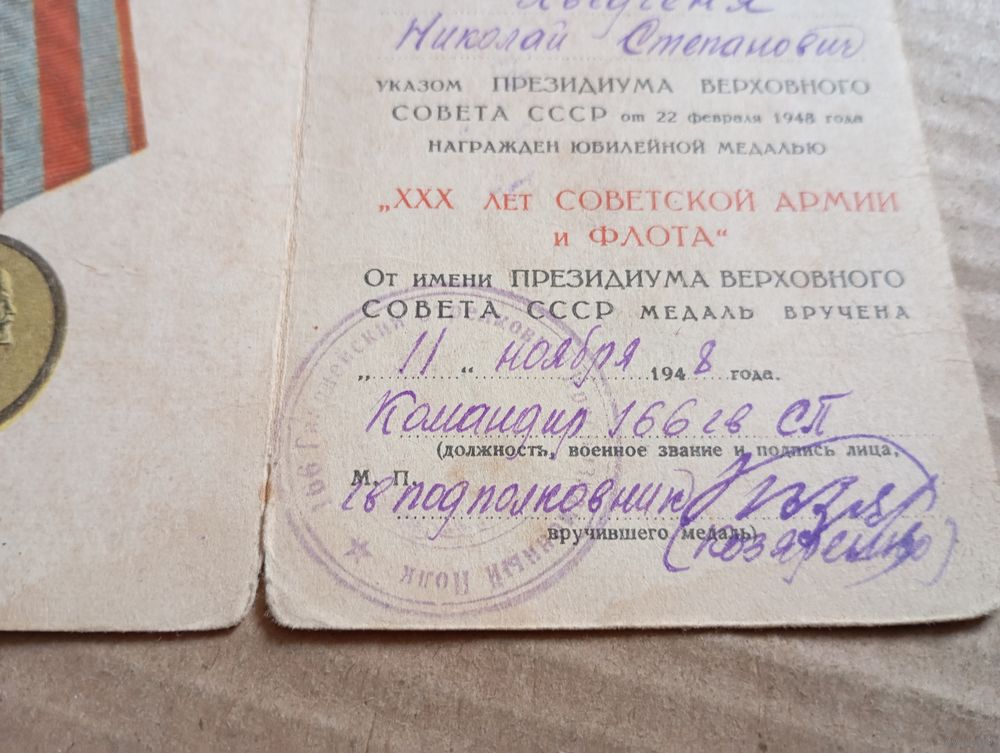 Николай Степанович
указом ПРЕЗИДИУМА ВЕРХОВНОГО
СОВЕТА СССР от 22 февраля 1948 года
НАГРАЖДЕН ЮБИЛЕЙНОЙ МЕДАЛЬЮ
„XXX лет СОВЕТСКОЙ АРМИИ
и ФЛОТА“
От имени ПРЕЗИДИУМА ВЕРХОВНОГО
СОВЕТА СССР МЕДАЛЬ ВРУЧЕНА
„11“ ноября 1948 года.
Командир 166 гв СП
(должность, военное звание и подпись лица,
М. П.
гв подполковник
вручившего медаль)
Полк